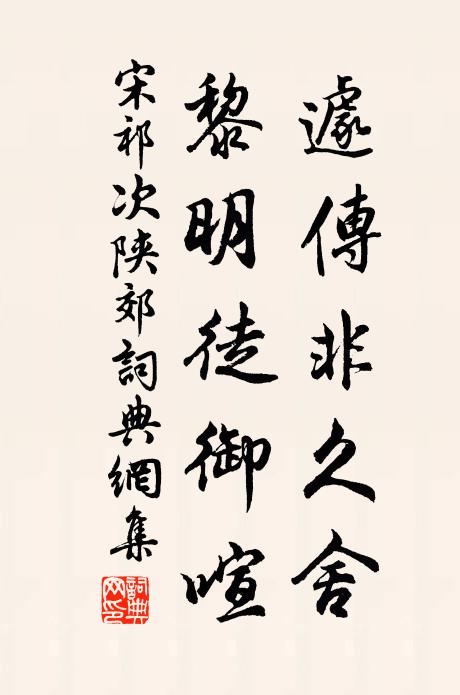 遽傳非久舍
黎明徒御喧
宋祁次陝郊詞典網集
詞典網印